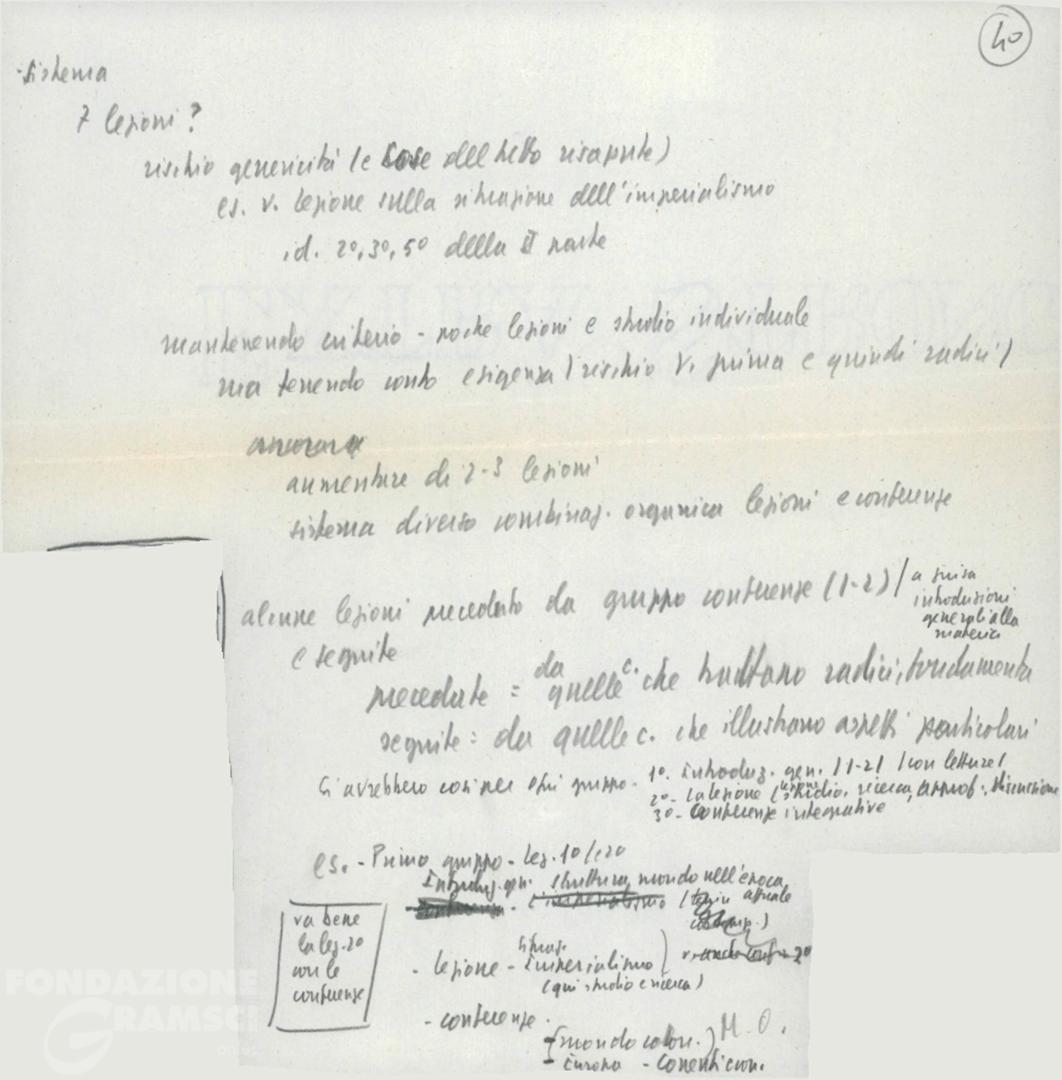 40
sistema
7 lezioni?
rischio genericità (e cose del tutto risapute)
es. v. lezione sulla situazione dell'imperialismo
id. 2º, 3º, 5º della II parte
mantenendo criterio - poche lezioni e studio individuale
ma tenendo conto esigenza (rischio v. prima e quindi radici)
aumentare di 2-3 lezioni
sistema diverso combinaz. organica lezioni e conferenze
alcune lezioni precedute da gruppo conferenze (1-2) / a guisa
introduzioni
generali alla
materia
e seguite
precedute = da quelle c. che trattano radici, fondamenta
seguite = da quelle c. che illustrano aspetti particolari
Si avrebbero così per ogni gruppo - 1º. introduz. gen. (1-2) (con letture)
2º - la lezione (studio, ricerca, approf., discussione
3º - Conferenze integrative
es. - Primo gruppo - Lez. 1º/2º
Introduz. gen. struttura mondo nell'epoca
imperialismo attuale
va bene
la lez. 2º
con le
conferenze
- lezione - situaz. imperialismo
(qui studio e ricerca)
- conferenze -
- mondo colon. M.O.
- Europa -
FONDAZIONE
GRAMSCI